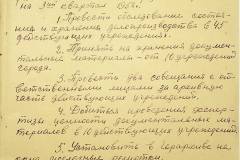 на 3ий квартал 1962г.
1. Провести обследование состоя-
ния и хранения делопроизводства в 45
действующих учреждений.
2. Принять на хранение докумен-
тальные материалы - от 10 учреждений
города.
3. Провести два совещания с от-
ветственными лицами за архивную
часть действующих учреждений.
4. Добиться проведения экспер-
тизы ценности документальных ма-
териалов в 10 действующих учреждений.
5. Установить в